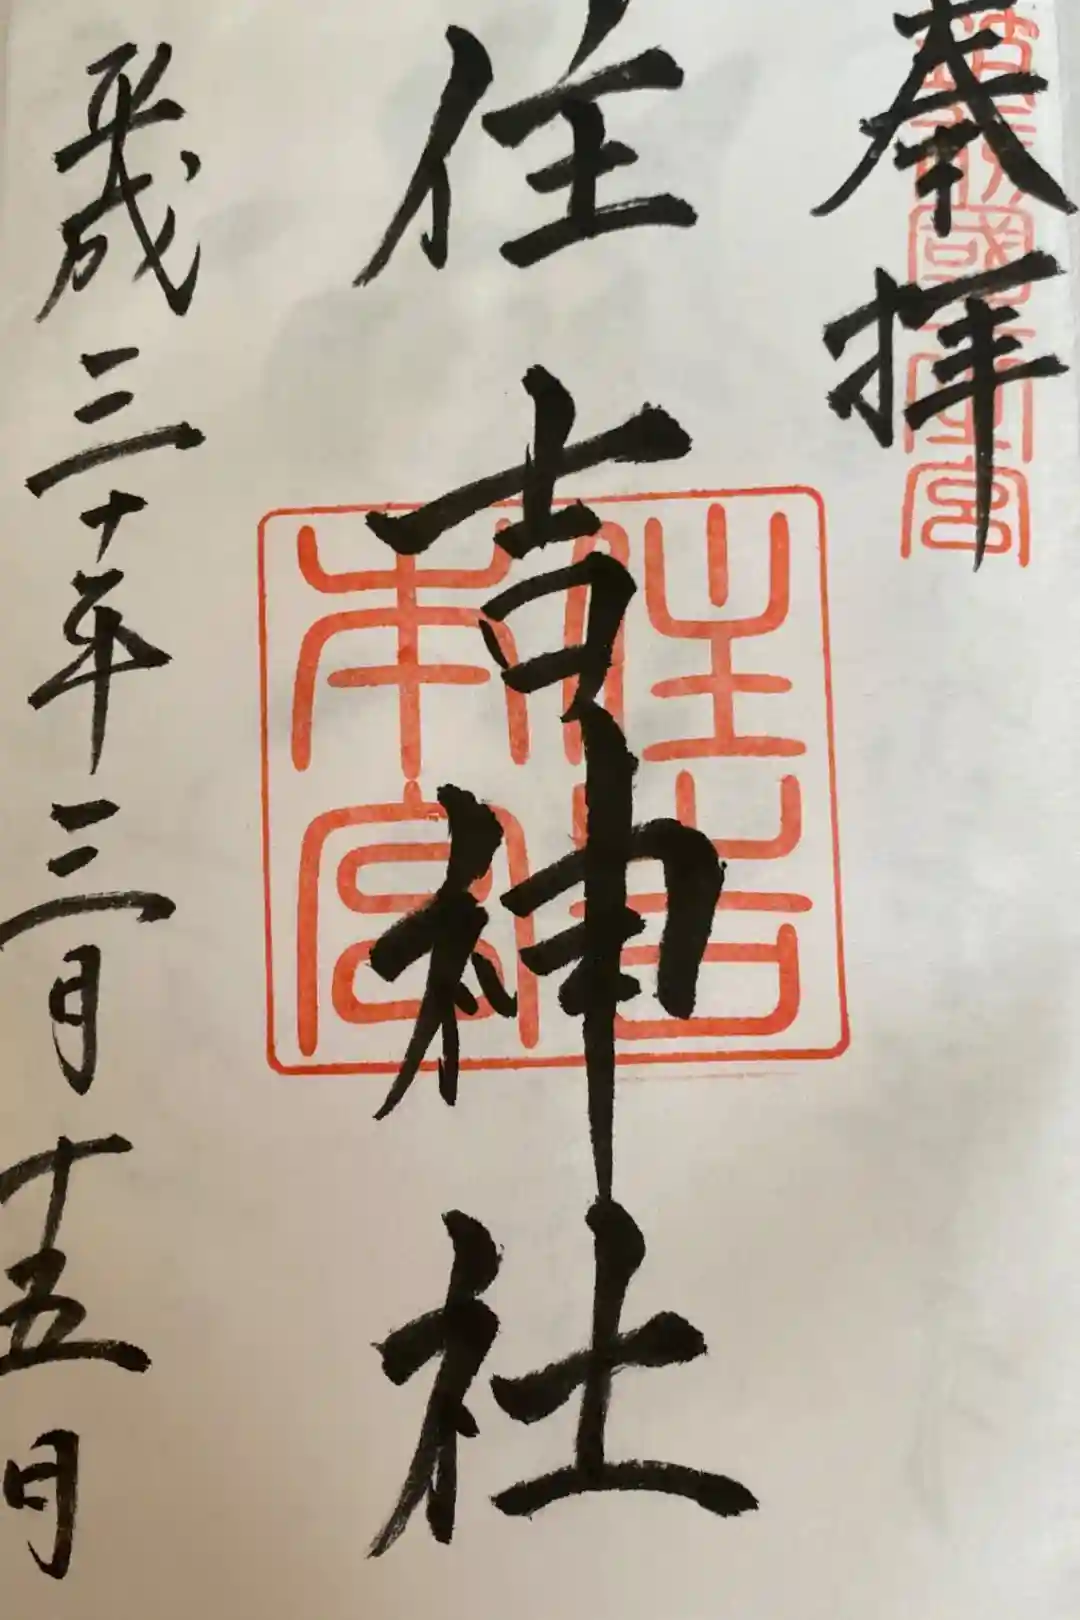 奉拝
住吉神社
住吉
本宮
平成三十年三月十五日